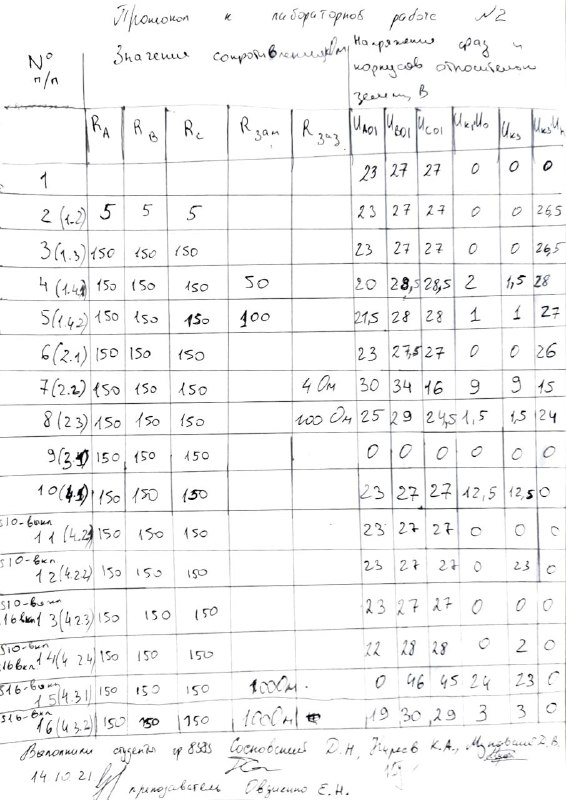 Протокол к лабораторной работе №2
№ п/п Значения сопротивления, кОм Напряжения фаз и корпусов относительно земли, В
RA RB RC Rзам Rзаз UA01 UB01 UC01 Uк1
1 23 27 27 0 0 0
2 (1.2) 5 5 5 23 27 27 0 0 26,5
3 (1.3) 150 150 150 23 27 27 0 0 26,5
4 150 150 150 50 20 28,5 28,5 2 1,5 28
5 (1.4.2) 150 150 150 100 21,5 28 28 1 1 27
6 (2.1) 150 150 150 23 27,5 27 0 0 26
7 (2.2) 150 150 150 4 Ом 30 34 16 9 9 15
8 (2.3) 150 150 150 100 Ом 25 29 24,5 1,5 1,5 24
9 150 150 150 0 0 0 0 0 0
10 150 150 150 23 27 27 12,5 12,5 0
S10-выкл
11 (4.2) 150 150 150 23 27 27 0 0 0
S10-вкл
12 (4.2.2) 150 150 150 23 27 27 0 23 0
S10-выкл
S16 вкл 13 (4.2.3) 150 150 150 23 27 27 0 0 0
S10-вкл
S16 вкл 14 (4.2.4) 150 150 150 22 28 28 0 2 0
S16-выкл
15 (4.3.1) 150 150 150 100 Ом 0 46 45 24 23 0
S16-вкл
16 (4.3.2) 150 150 150 100 Ом 19 30 29 3 3 0
Выполнили студенты гр 8585 Сосновский Д.Н, К.А.,
14.10.21 преподаватель Овдиенко Е.Н.